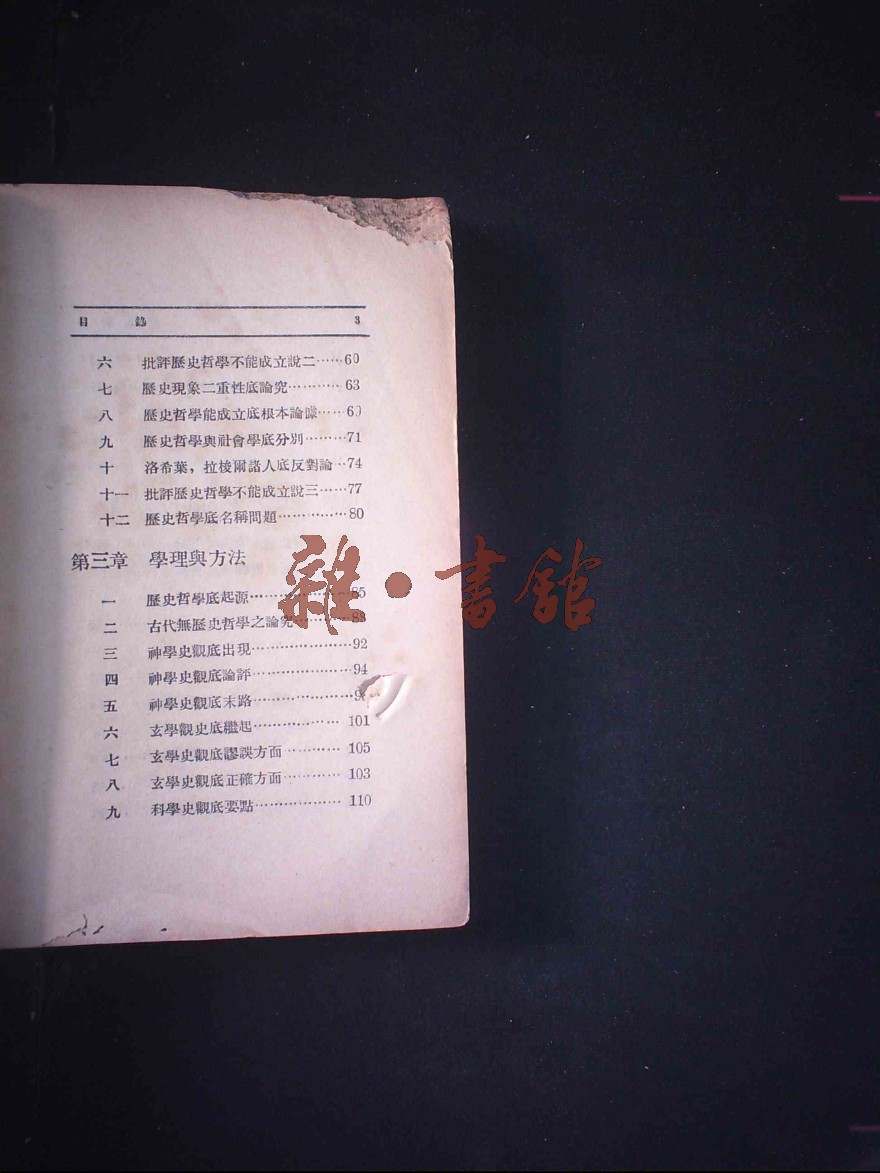 目 錄 3
六 批評歷史哲學不能成立說二……60
七 歷史現象二重性底論究…………63
八 歷史哲學能成立底根本論據……6
九 歷史哲學與社會學底分別………71
十 洛希葉，拉梭爾諸人底反對論…74
十一 批評歷史哲學不能成立說三……77
十二 歷史哲學底名稱問題……………80
第三章 學理與方法
一 歷史哲學底起源…………………85
二 古代無歷史哲學之論究…………
三 神學史觀底出現…………………92
四 神學史觀底論評…………………94
五 神學史觀底末路…………………9
六 玄學觀史底繼起………………101
七 玄學史觀底謬誤方面…………105
八 玄學史觀底正確方面…………103
九 科學史觀底要點………………110
雜·書館